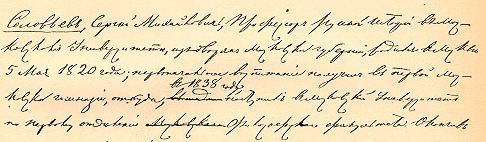 Соловьевъ, Сергѣй Михайловичъ, Профессоръ русской исторіи въ Мос-
ковскомъ Университетѣ, изъ Москвы губерніи, родился въ Москвѣ
5 Мая 1820 года; первоначальное воспитаніе получилъ въ первой Мос-
въ 1838 году
ковской гимназіи, откуда, поступилъ въ Московскій Университетъ
по первому отдѣленію Философскаго факультета. Окончивъ